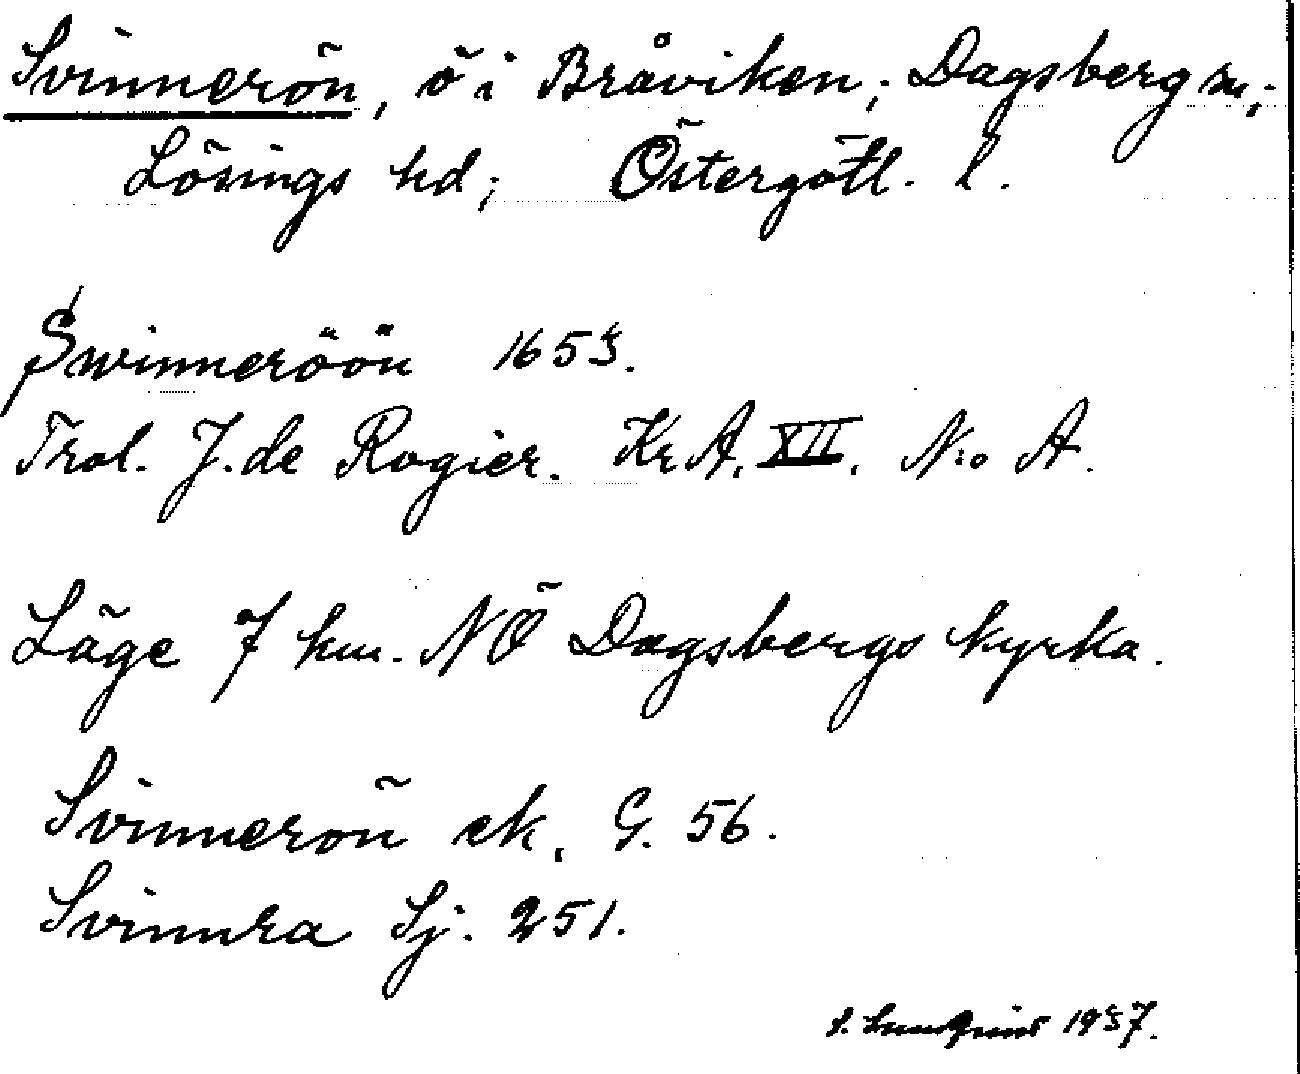 Svinnerön, ö i Bråviken; Dagsberg sn;
Lösings hd; Östergötl. l.
Swinneröön 1653.
Trol. J. de Rogier. Kr A. XII. N:o A.
Läge 7 km. NÖ Dagsbergs kyrka.
Svinnerön ek. G. 56.
Svinnra Sj. 251.
1937.